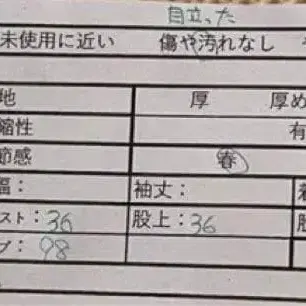 目立った
未使用に近い 傷や汚れなし
地 厚 厚め
縮性 有
節感 春
幅： 袖丈： 着
スト：36 股上：36 股
プ：98